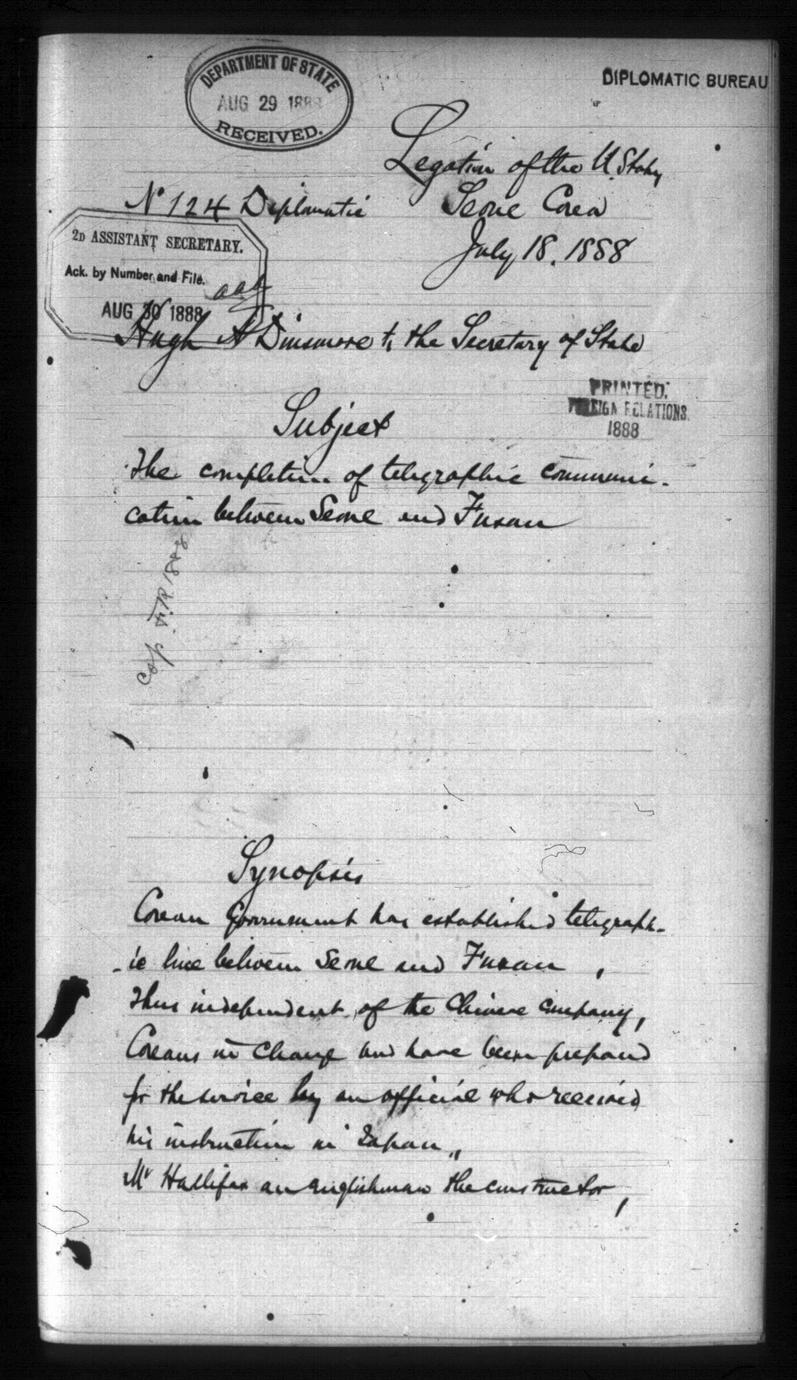 DEPARTMENT OF STATE
AUG 29 1888
RECEIVED.
DIPLOMATIC BUREAU
Legation of the U. States
No 124 Diplomatic
Seoul Corea
July 18, 1888
2D ASSISTANT SECRETARY.
Ack. by Number and File.
AUG 30 1888
Hugh A Dinsmore to the Secretary of State
PRINTED.
FOREIGN RELATIONS.
1888
Subject
The completion of telegraphic communi-
cation between Seoul and Fusan
Cop. F.R. 1888
Synopsis
Corean Government has established telegraph-
ic line between Seoul and Fusan,
Thus independent of the Chinese Company,
Coreans in charge and have been prepared
for the service by an official who received
his instruction in Japan,,
Mr Hallifax an Englishman the constructor,